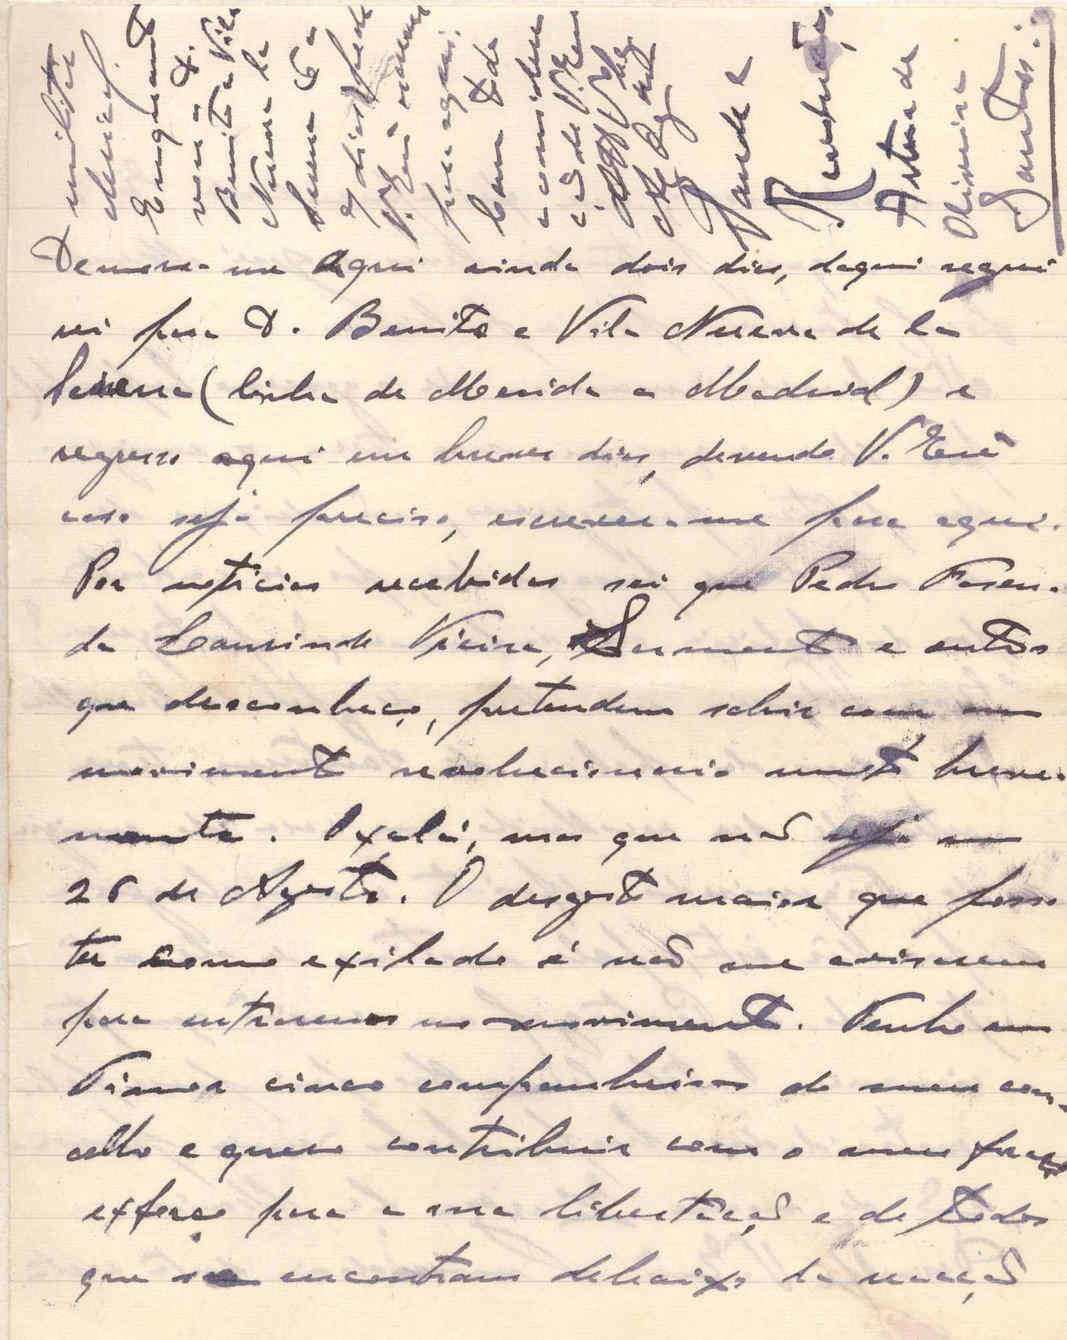 Demoro-me aqui ainda dois dias, daqui segui
rei para D. Benito e Vila Nueva de la
Serena (linha de Merida a Madrid) e
regresso aqui em breves dias, devendo V. Excia
caso seja preciso, escrever-me para aqui.
Por noticias recebidas sei que Pedro Fasen-
da Laurindo Vieira, Sarmento e outros
que desconheço, pretendem sahir com um
movimento revolucionario muito breve-
mente. Oxalá, mas que não seja um
26 de Agosto. O desgosto maior que posso
ter como exilado é não me avisarem
para entrarmos no movimento. Tenho em
Vianor cinco companheiros do meu con-
celho e quero contribuir com o meu fraco
exforço para a sua libertação e de todos
que se encontram debaixo da reacção
militar
clerical.
Emquanto
vou a D.
Benito e Vila
Nueva de la
Serena 6 a
7 dias pode
V. Excia
para aqui.
Com toda
a conside
ção de V. Exa
Saude e
Artur de
Oliveira
Santos.